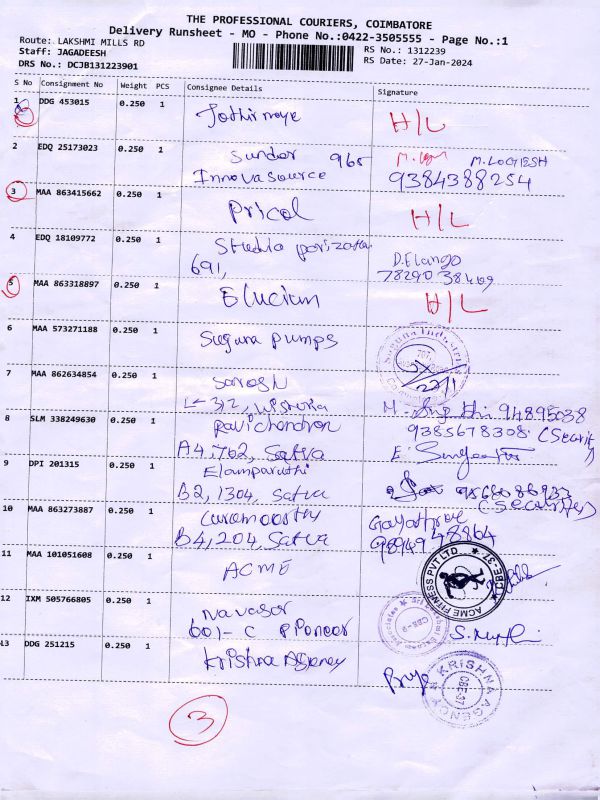 THE PROFESSIONAL COURIERS, COIMBATORE
Delivery Runsheet - MO - Phone No.:0422-3505555 - Page No.:1
Route: LAKSHMI MILLS RD
Staff: JAGADEESH
DRS No.: DCJB131223901
RS No.: 1312239
RS Date: 27-Jan-2024
S No Consignment No Weight PCS Consignee Details Signature
1 DDG 453015 0.250 1 H/L
2 EDQ 25173023 0.250 1 Sundar 965 M. LOGESH
Innovasource 9384388254
3 MAA 863415662 0.250 1 Pricol H/L
4 EDQ 18109772 0.250 1 Studio D. Elango
691, 78290 38469
5 MAA 863318897 0.250 1 Elucium H/L
6 MAA 573271188 0.250 1 Suguna Pumps
7 MAA 862634854 0.250 1 Sarosh
312, 94895038
8 SLM 338249630 0.250 1 Ravichandran 9385678308 (Securit
A4, 702, Satva
9 DPI 201315 0.250 1 Elamparuthi
B2, 1304, Satva (Security)
10 MAA 863273887 0.250 1 Gayathree
B4, 204, Satva 9894948864
11 MAA 101051608 0.250 1 ACME
ACME FITNESS PVT LTD CBE-37
12 IXM 505766805 0.250 1 Navasar
601-C Pioneer
13 DDG 251215 0.250 1 Krishna Agency
KRISHNA AGENCY CBE-37
3